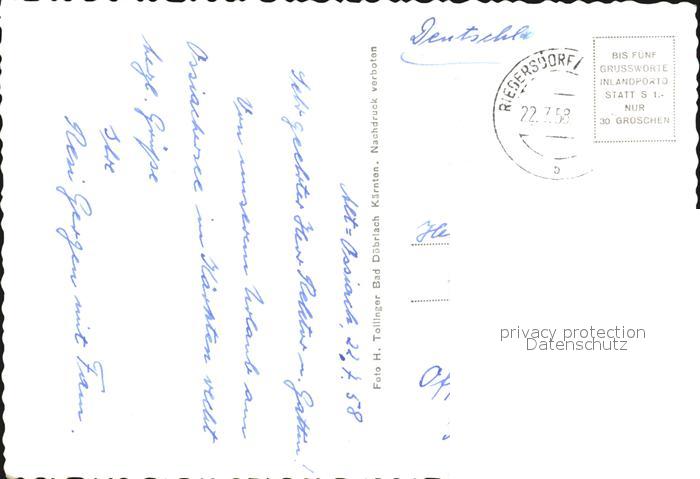 Alt=Ossiach, 22.7.58
Sehr geehrter Herr Rektor u. Gattin!
Von unserem Urlaub am
Ossiachersee in Kärnten recht
herzl. Grüße
Ihre
Resi Gergen mit Fam.
Foto H. Tollinger Bad Döbriach Kärnten. Nachdruck verboten
Deutschla
RIEGERSDORF
22.7.58
b
BIS FÜNF
GRUSSWORTE
INLANDPORTO
STATT S 1.-
NUR
30 GROSCHEN
He
Of
privacy protection
Datenschutz